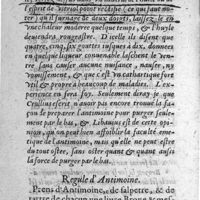 l'esprit de vitriol
ter) qu'il surnage de deux doigts, laissez le en
vne chaleur moderee quelque temps, & l'huyle
deuiendra rougeastre. D'icelle ils disent que
quatre, cinq, six gouttes iusques à dix, donnees
en quelque liqueur conuenable laschent le ventre
sans causer aucune nuisance, nausee, ny
vomissement, & que c'est vn cathartique fort
vtil & propre en beaucoup de maladies. L'experience
en fera foy. Seulement diray-ie, que
Crullius escrit n'auoir pas encore trouué la façon
de preparer l'antimoine pour purger seulement
par le bas, & Libauius est de cette
opinion, qu'on peut bien affoiblir la faculté emetique
de l'antimoine, mais qu'elle ne peut estre
du tout ostee, sans oster quant & quant aussi
la force de purger par le bas.
Regule d'Antimoine.
Prens d'Antimoine, de salpetre, & de
tartre de chacun vne liure